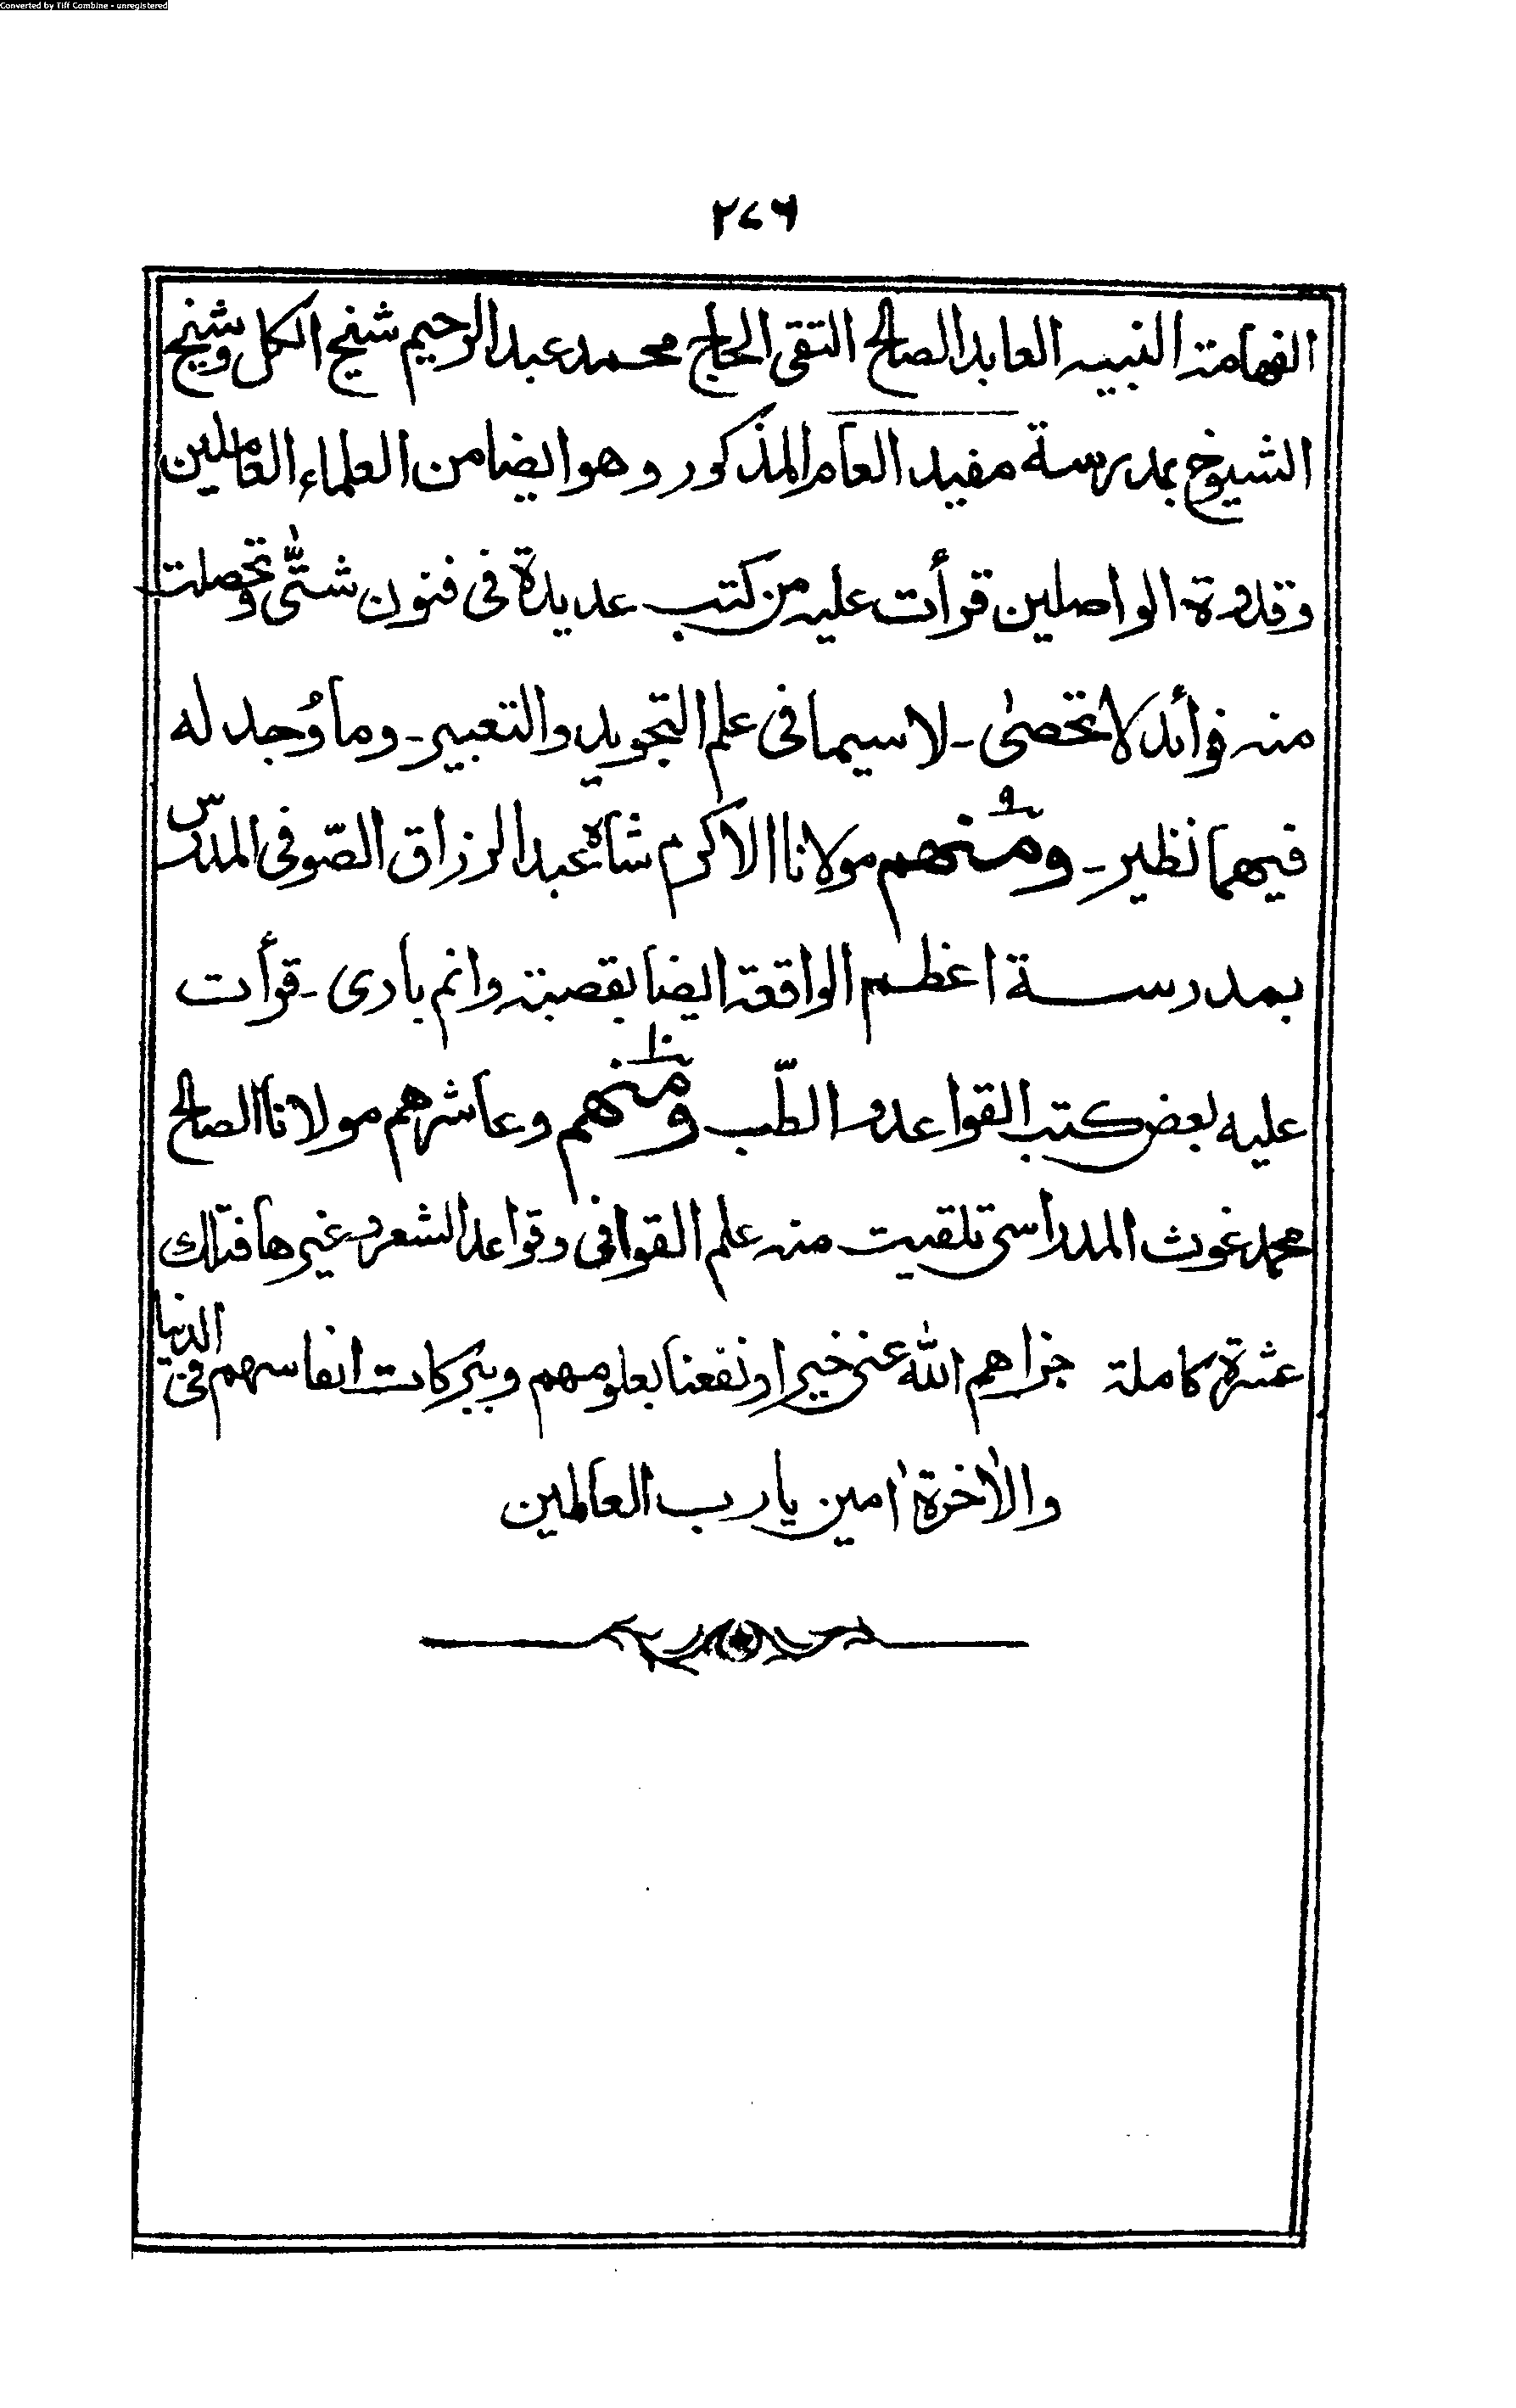 Converted by Tiff Combine - unregistered
۲۷۶
الفهامة النبيه العابد الصالح التقى الحاج محمد عبد الرحيم شيخ الكل وشيخ
الشيوخ بمدرسة مفيد العام المذكور وهو ايضا من العلماء العاملين
وقدوة الواصلين قرأت عليه من كتب عديدة فى فنون شتّٰى وتحصلت
منه فوائد لا تحصىٰ - لاسيما فى علم التجويد والتعبير - وما وُجد له
فيهما نظير - ومنهم ۹ مولانا الاكرم شاه عبد الرزاق الصّوفى المدرس
بمدرسة اعظم الواقعة ايضا بقصبة وانم بارى - قرأت
عليه بعض كتب القواعد والطّب ومنهم ۱۰ وعاشرهم مولانا الصالح
محمد غوث المدراسى تلقيت منه علم القوافى وقواعد الشعر وغيرها فتلك
عشرة كاملة جزاهم الله عنى خيرا ونفعنا بعلومهم وببركات انفاسهم فى الدنيا
والاٰخرة اٰمين يارب العالمين